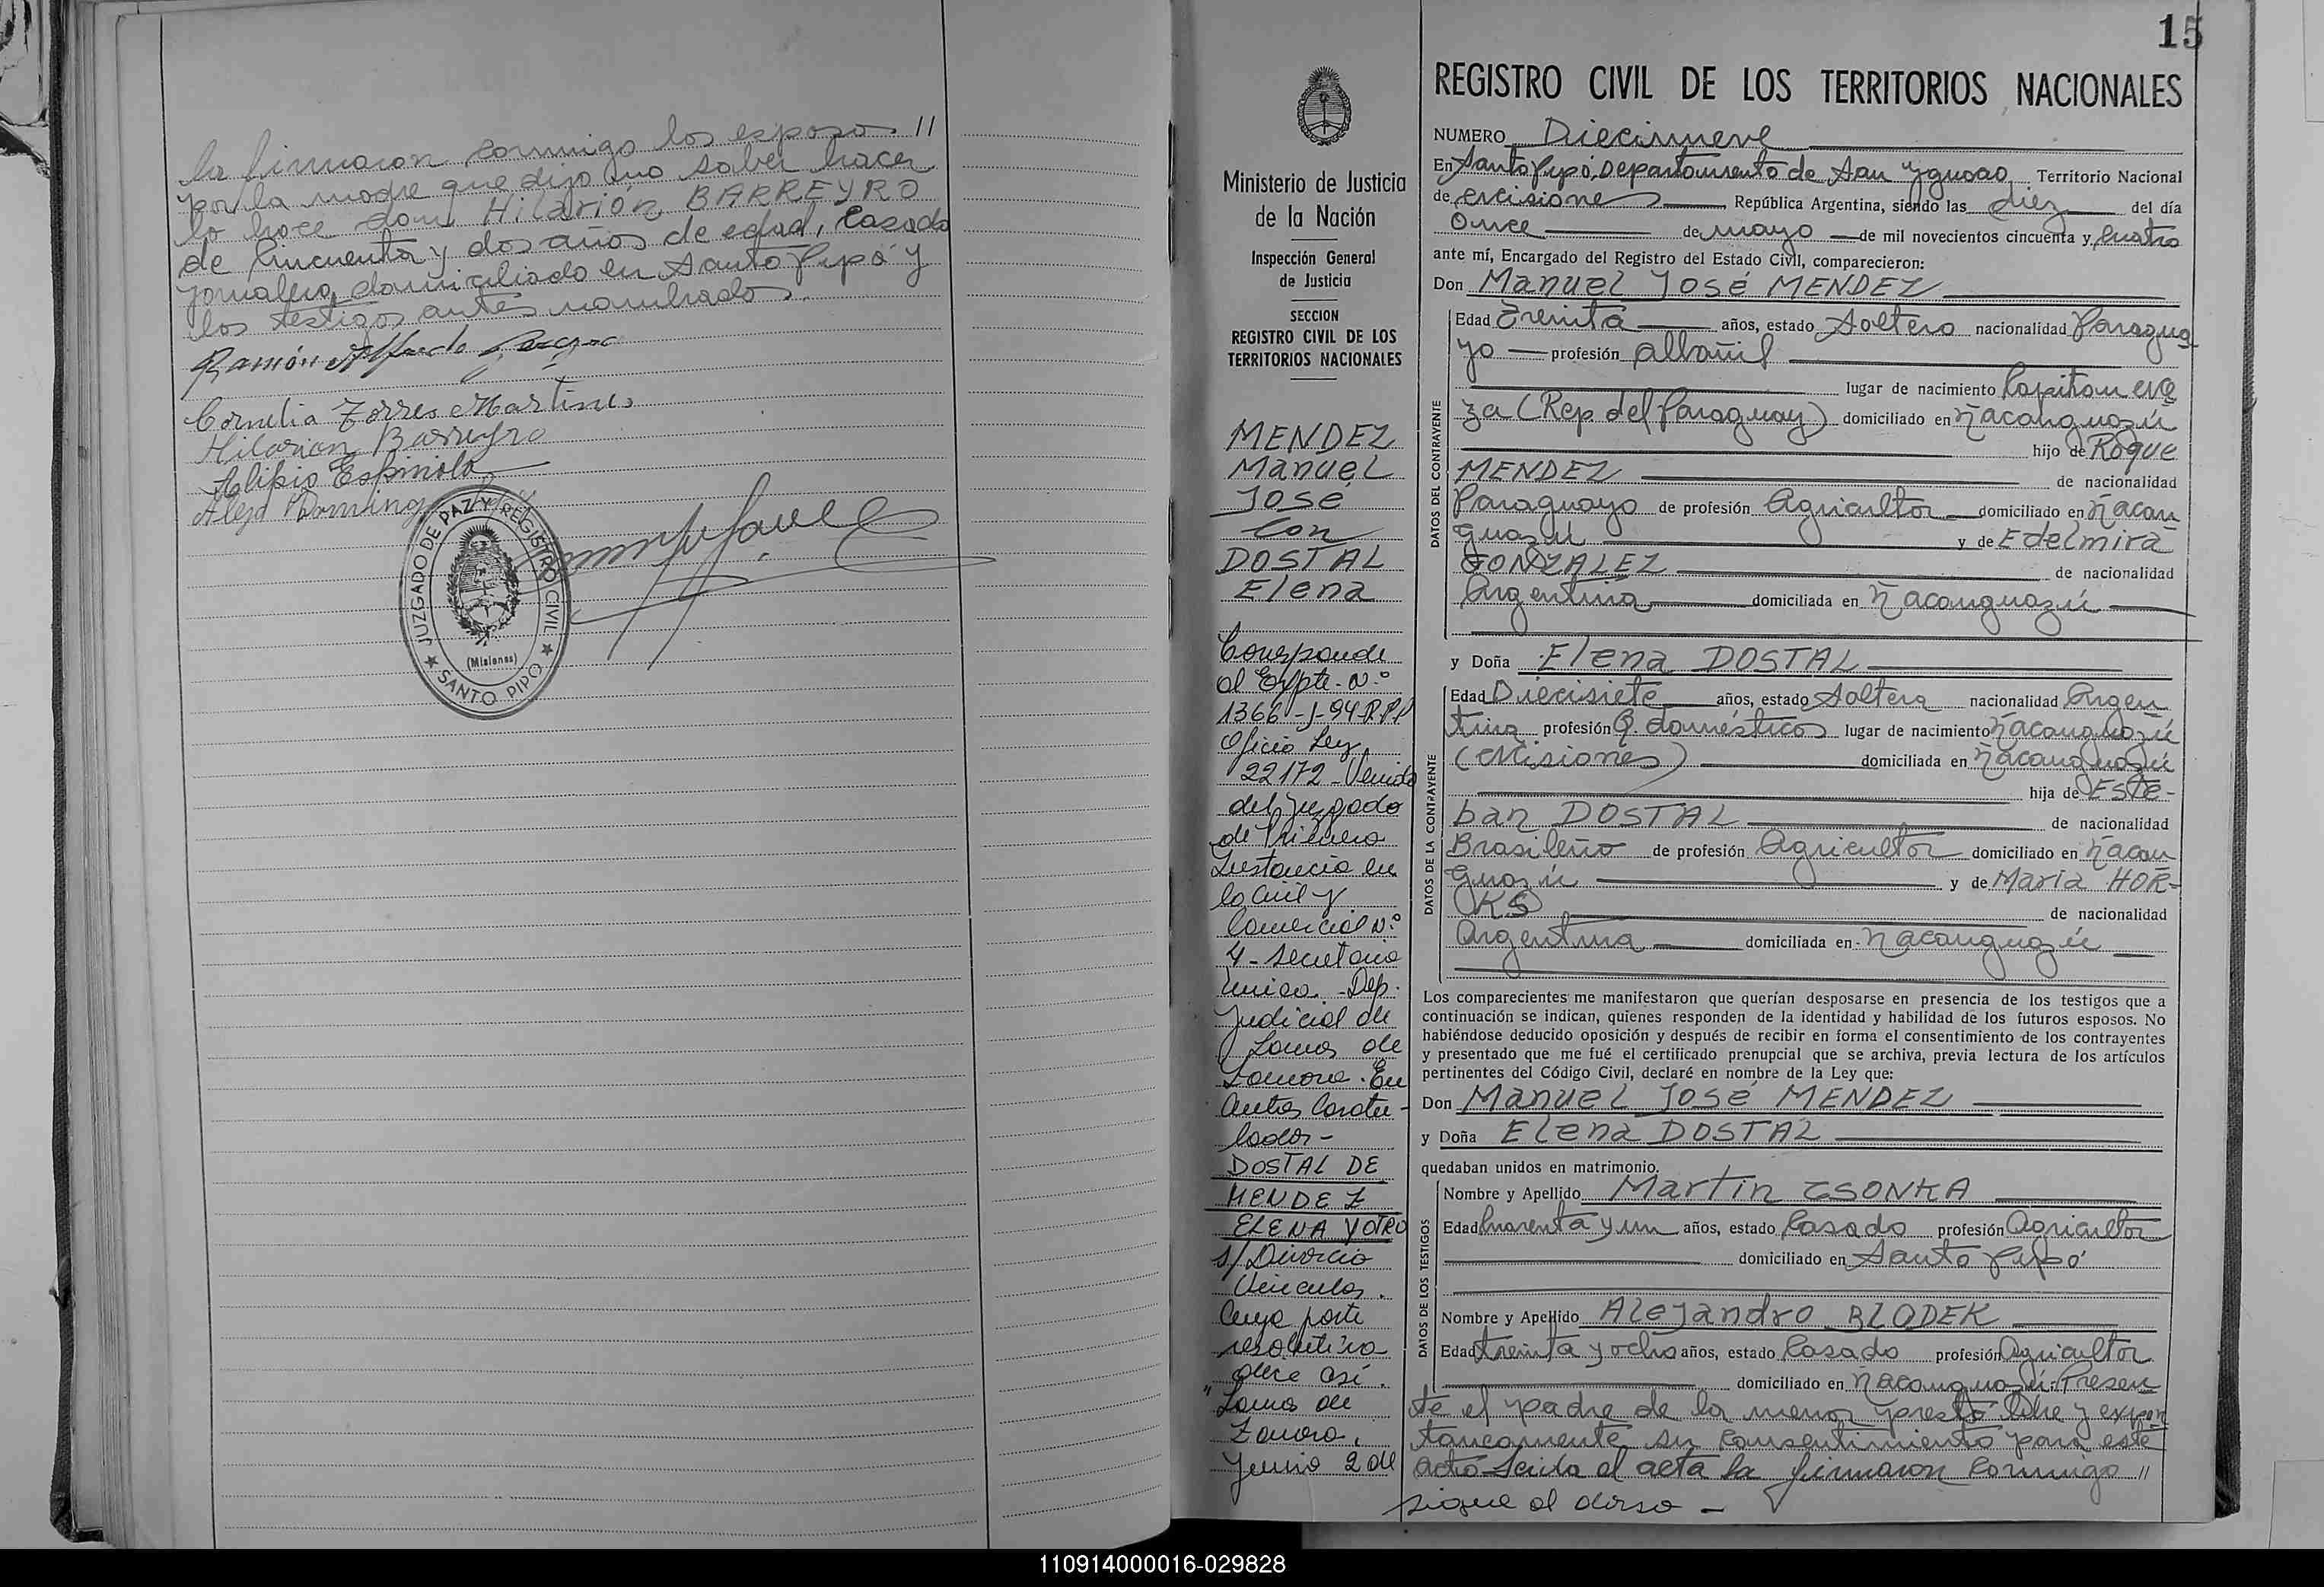 la firmaron conmigo los esposos //
por la madre que dijo no saber hacer
lo hace don Hilarión BARREYRO
de cincuenta y dos años de edad, casado
jornalero, domiciliado en Santo Pipó y
los testigos antes nombrados.
Ramón Alfredo
Cornelia Torres Martines
Hilarion Barreyro
Alipio Espinola
Alejo Doming
JUZGADO DE PAZ Y REGISTRO CIVIL
(Misiones)
★ SANTO PIPO ★
15
Ministerio de Justicia
de la Nación
Inspección General
de Justicia
SECCION
REGISTRO CIVIL DE LOS
TERRITORIOS NACIONALES
MENDEZ
Manuel
José
con
DOSTAL
Elena
Corresponde
al Expte. N.º
1366-J-94-R.P.P
Oficio Ley
22172 - Venido
del juzgado
de Primera
Instancia en
lo Civil y
Comercial N.º
4 - Secretaria
Unica. - Dep.
Judicial de
Lomas de
Zamora. En
autos Caratu-
lados -
DOSTAL DE
MENDEZ
ELENA Y OTRO
s/ Divorcio
Vincular.
Cuya parte
resolutiva
dice así.
"Lomas de
Zamora,
Junio 2 de
REGISTRO CIVIL DE LOS TERRITORIOS NACIONALES
NUMERO Diecinueve
En Santo Pipó, Departamento de San Ygnacio Territorio Nacional
de Misiones República Argentina, siendo las diez del día
Once de mayo de mil novecientos cincuenta y cuatro
ante mí, Encargado del Registro del Estado Civil, comparecieron:
Don Manuel José MENDEZ
DATOS DEL CONTRAYENTE
Edad Treinta años, estado Soltero nacionalidad Paragua
yo profesión albañil
lugar de nacimiento Capitan Me
za (Rep. del Paraguay) domiciliado en Ñacanguazú
hijo de Roque
MENDEZ de nacionalidad
Paraguayo de profesión Agricultor domiciliado en Ñacan
guazú y de Edelmira
GONZALEZ de nacionalidad
Argentina domiciliada en Ñacanguazú
y Doña Elena DOSTAL
DATOS DE LA CONTRAYENTE
Edad Diecisiete años, estado Soltera nacionalidad Argen
tina profesión Q. domésticos lugar de nacimiento Ñacanguazú
(Misiones) domiciliada en Ñacanguazú
hija de Este-
ban DOSTAL de nacionalidad
Brasileño de profesión Agricultor domiciliado en Ñacan
guazú y de Maria HOR-
KS de nacionalidad
Argentina domiciliada en Ñacanguazú
Los comparecientes me manifestaron que querían desposarse en presencia de los testigos que a
continuación se indican, quienes responden de la identidad y habilidad de los futuros esposos. No
habiéndose deducido oposición y después de recibir en forma el consentimiento de los contrayentes
y presentado que me fué el certificado prenupcial que se archiva, previa lectura de los artículos
pertinentes del Código Civil, declaré en nombre de la Ley que:
Don Manuel José MENDEZ
y Doña Elena DOSTAL
quedaban unidos en matrimonio.
DATOS DE LOS TESTIGOS
Nombre y Apellido Martin CSONKA
Edad Cuarenta y un años, estado Casado profesión Agricultor
domiciliado en Santo Pipó
Nombre y Apellido Alejandro BLODEK
Edad treinta y ocho años, estado Casado profesión Agricultor
domiciliado en Ñacanguazú: Presen
te el padre de la menor prestó libre y expon
taneamente su consentimiento para este
acto- Leida el acta la firmaron conmigo //
sigue al dorso -
110914000016-029828